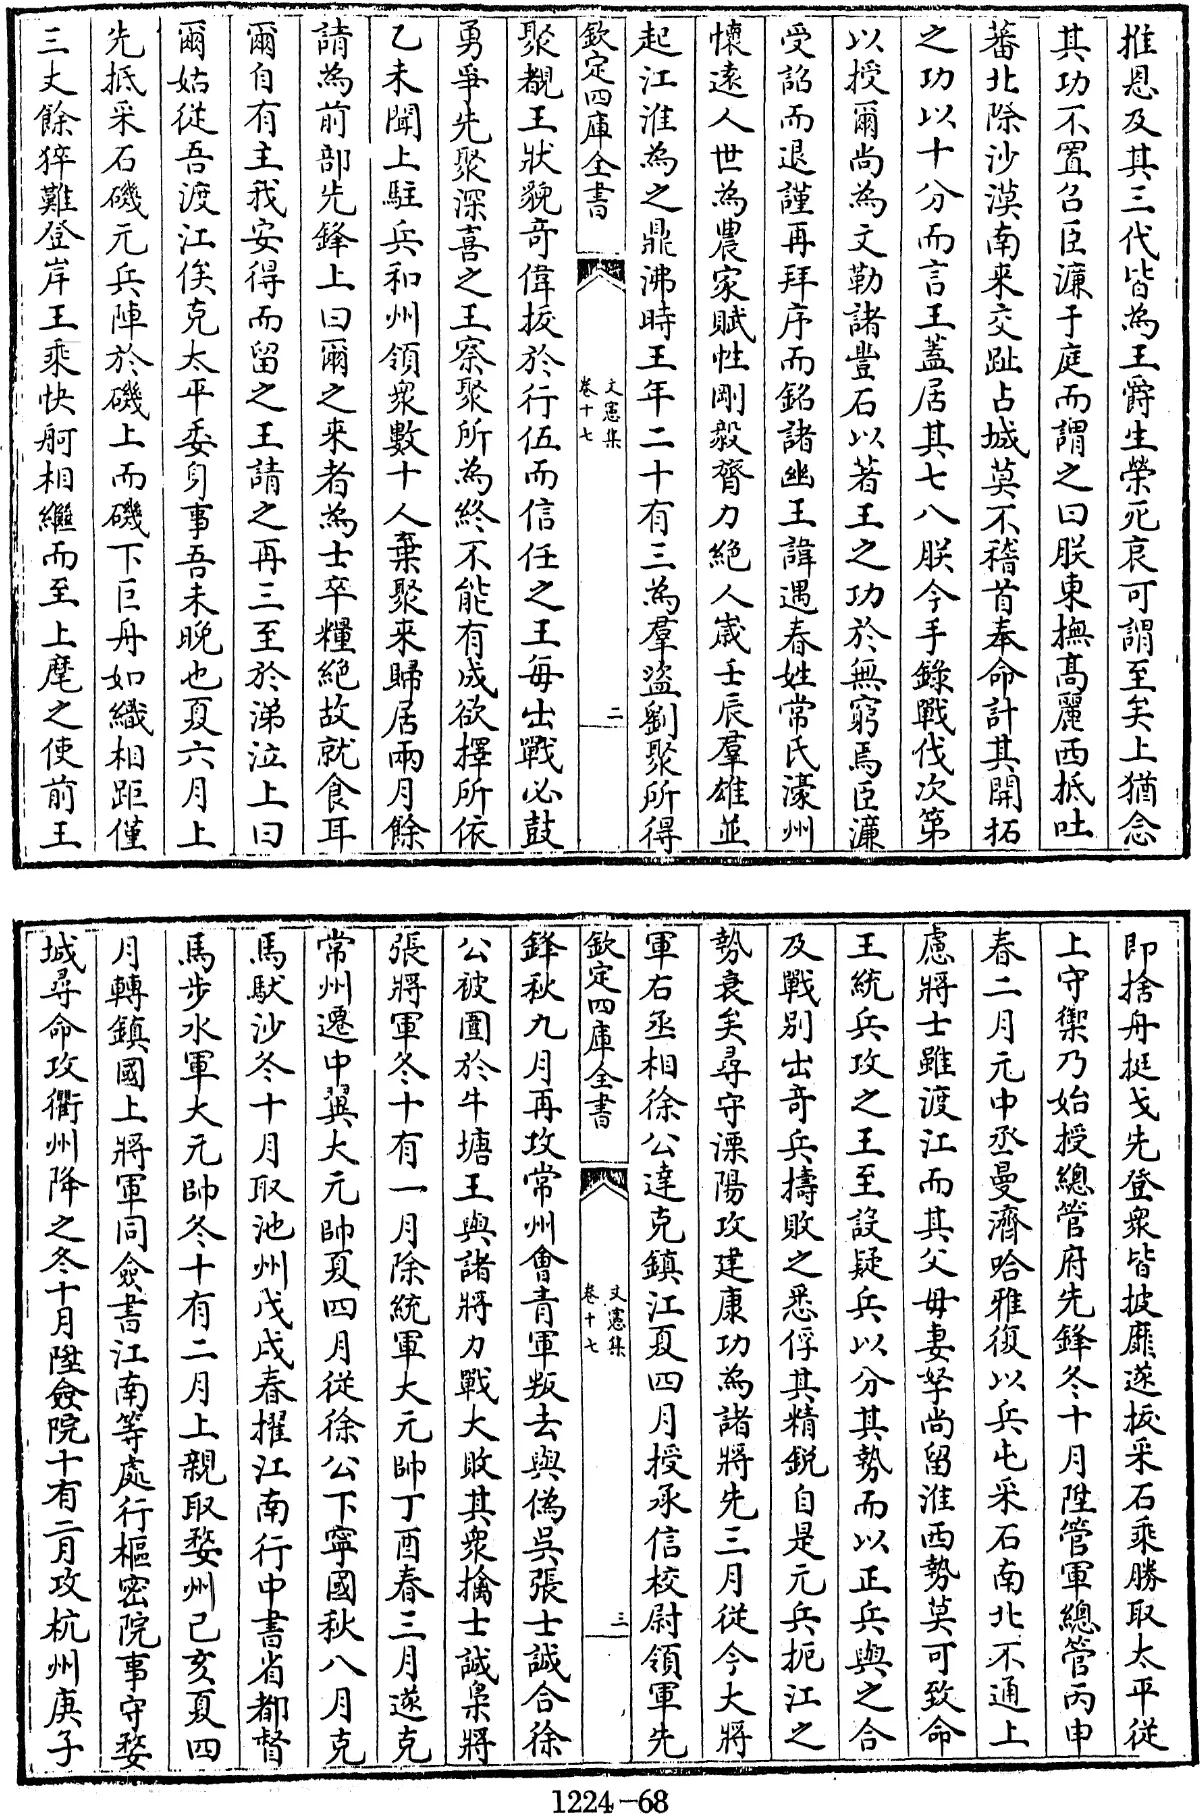 推恩及其三代皆為王爵生榮死哀可謂至矣上猶念
其功不置召臣濂于庭而謂之曰朕東撫高麗西抵吐
蕃北際沙漠南來交趾占城莫不稽首奉命計其開拓
之功以十分而言王蓋居其七八朕今手錄戰伐次第
以授爾尚為文勒諸豐石以著王之功於無窮焉臣濂
受詔而退謹再拜序而銘諸幽王諱遇春姓常氏濠州
懷遠人世為農家賦性剛毅膂力絶人嵗壬辰羣雄並
起江淮為之鼎沸時王年二十有三為羣盜劉聚所得
欽定四庫全書
文憲集
卷十七
二
聚覩王狀貌奇偉抜於行伍而信任之王每出戰必鼓
勇爭先聚深喜之王察聚所為終不能有成欲擇所依
乙未聞上駐兵和州領衆數十人棄聚來歸居兩月餘
請為前部先鋒上曰爾之來者為士卒糧絶故就食耳
爾自有主我安得而留之王請之再三至於涕泣上曰
爾姑從吾渡江俟克太平委身事吾未晚也夏六月上
先抵采石磯元兵陣於磯上而磯下巨舟如織相距僅
三丈餘猝難登岸王乘快舸相繼而至上麾之使前王
即捨舟挺戈先登衆皆披靡遂抜采石乘勝取太平從
上守禦乃始授總管府先鋒冬十月陞管軍總管丙申
春二月元中丞曼濟哈雅復以兵屯采石南北不通上
慮將士雖渡江而其父母妻孥尚留淮西勢莫可致命
王統兵攻之王至設疑兵以分其勢而以正兵與之合
及戰别出奇兵擣敗之悉俘其精鋭自是元兵扼江之
勢衰矣尋守溧陽攻建康功為諸將先三月從今大將
軍右丞相徐公達克鎮江夏四月授承信校尉領軍先
欽定四庫全書
文憲集
卷十七
三
鋒秋九月再攻常州會青軍叛去與偽吳張士誠合徐
公被圍於牛塘王與諸將力戰大敗其衆擒士誠梟將
張將軍冬十有一月除統軍大元帥丁酉春三月遂克
常州遷中翼大元帥夏四月從徐公下寧國秋八月克
馬馱沙冬十月取池州戊戌春擢江南行中書省都督
馬步水軍大元帥冬十有二月上親取婺州己亥夏四
月轉鎮國上將軍同僉書江南等處行樞密院事守婺
城尋命攻衢州降之冬十月陞僉院十有二月攻杭州庚子
1224-68